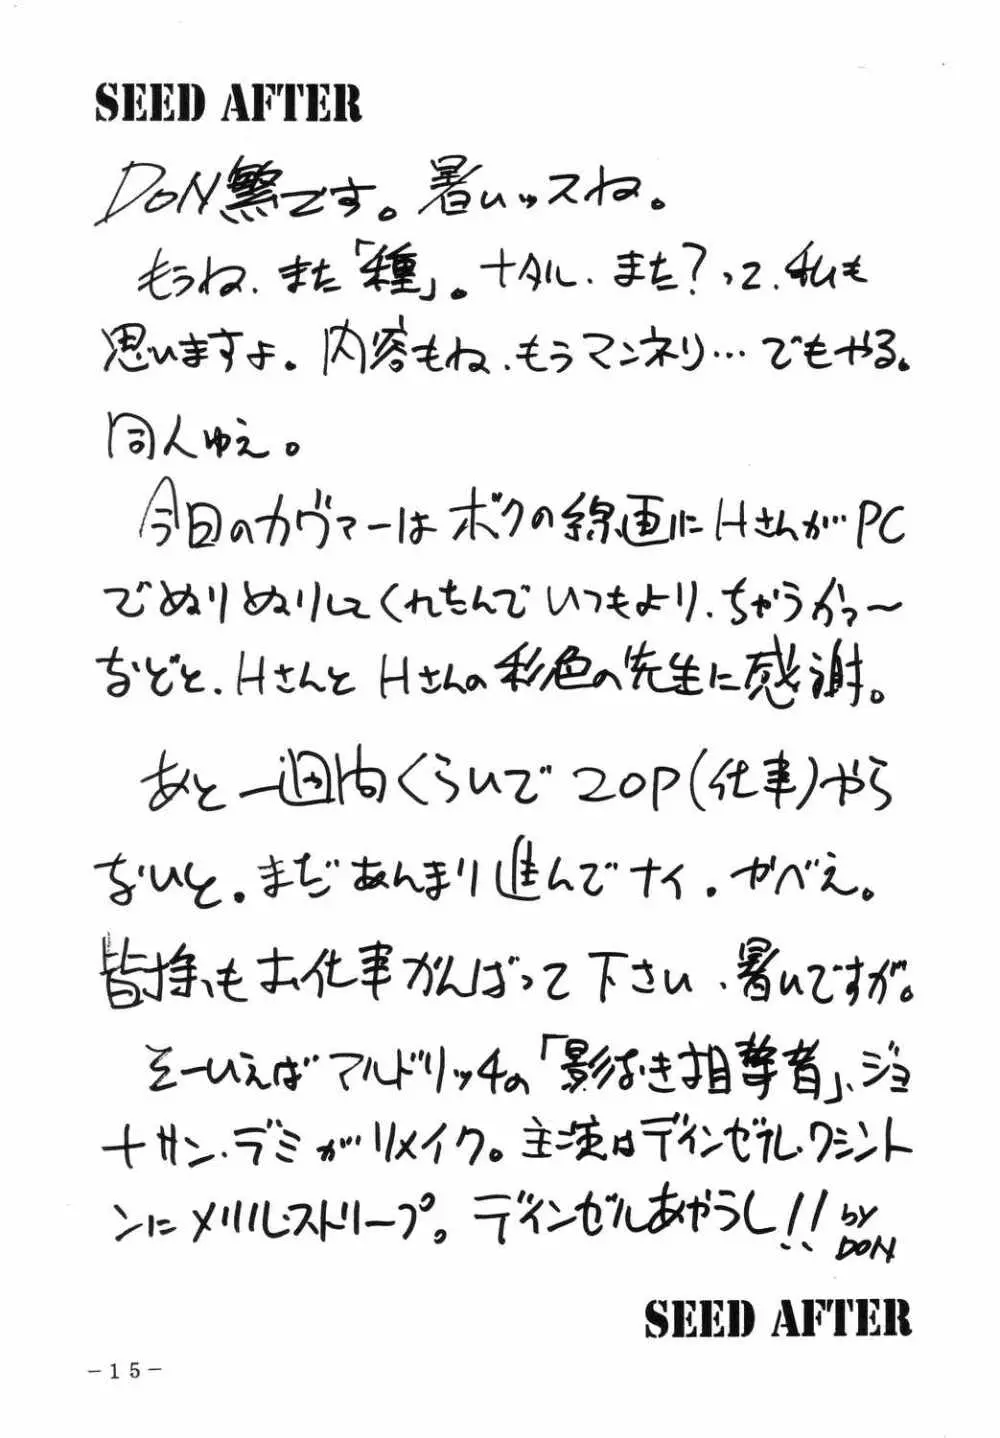 SEED AFTER
DON繁です。暑いッスね。
もうね、また「種」。ナタル、また？って、私も
思いますよ。内容もね、もうマンネリ…でもやる。
同人ゆえ。
今回のカヴァーはボクの線画にHさんが…PC
でぬりぬりしてくれたんでいつもより、ちゃうかァ～
などと、HさんとHさんの彩色の先生に感謝。
あと一週間くらいで20P(仕事)やら
ないと。まだあんまり進んでナイ。がべえ。
皆様もお仕事がんばって下さい、暑いですが。
そーいえばマルドリッチの「影なき狙撃者」、ジョ
ナサン・デミがリメイク。主演はディンゼル・ワシント
ンにメリル・ストリープ。ディンゼルあやうし!! by
DON
SEED AFTER
-15-